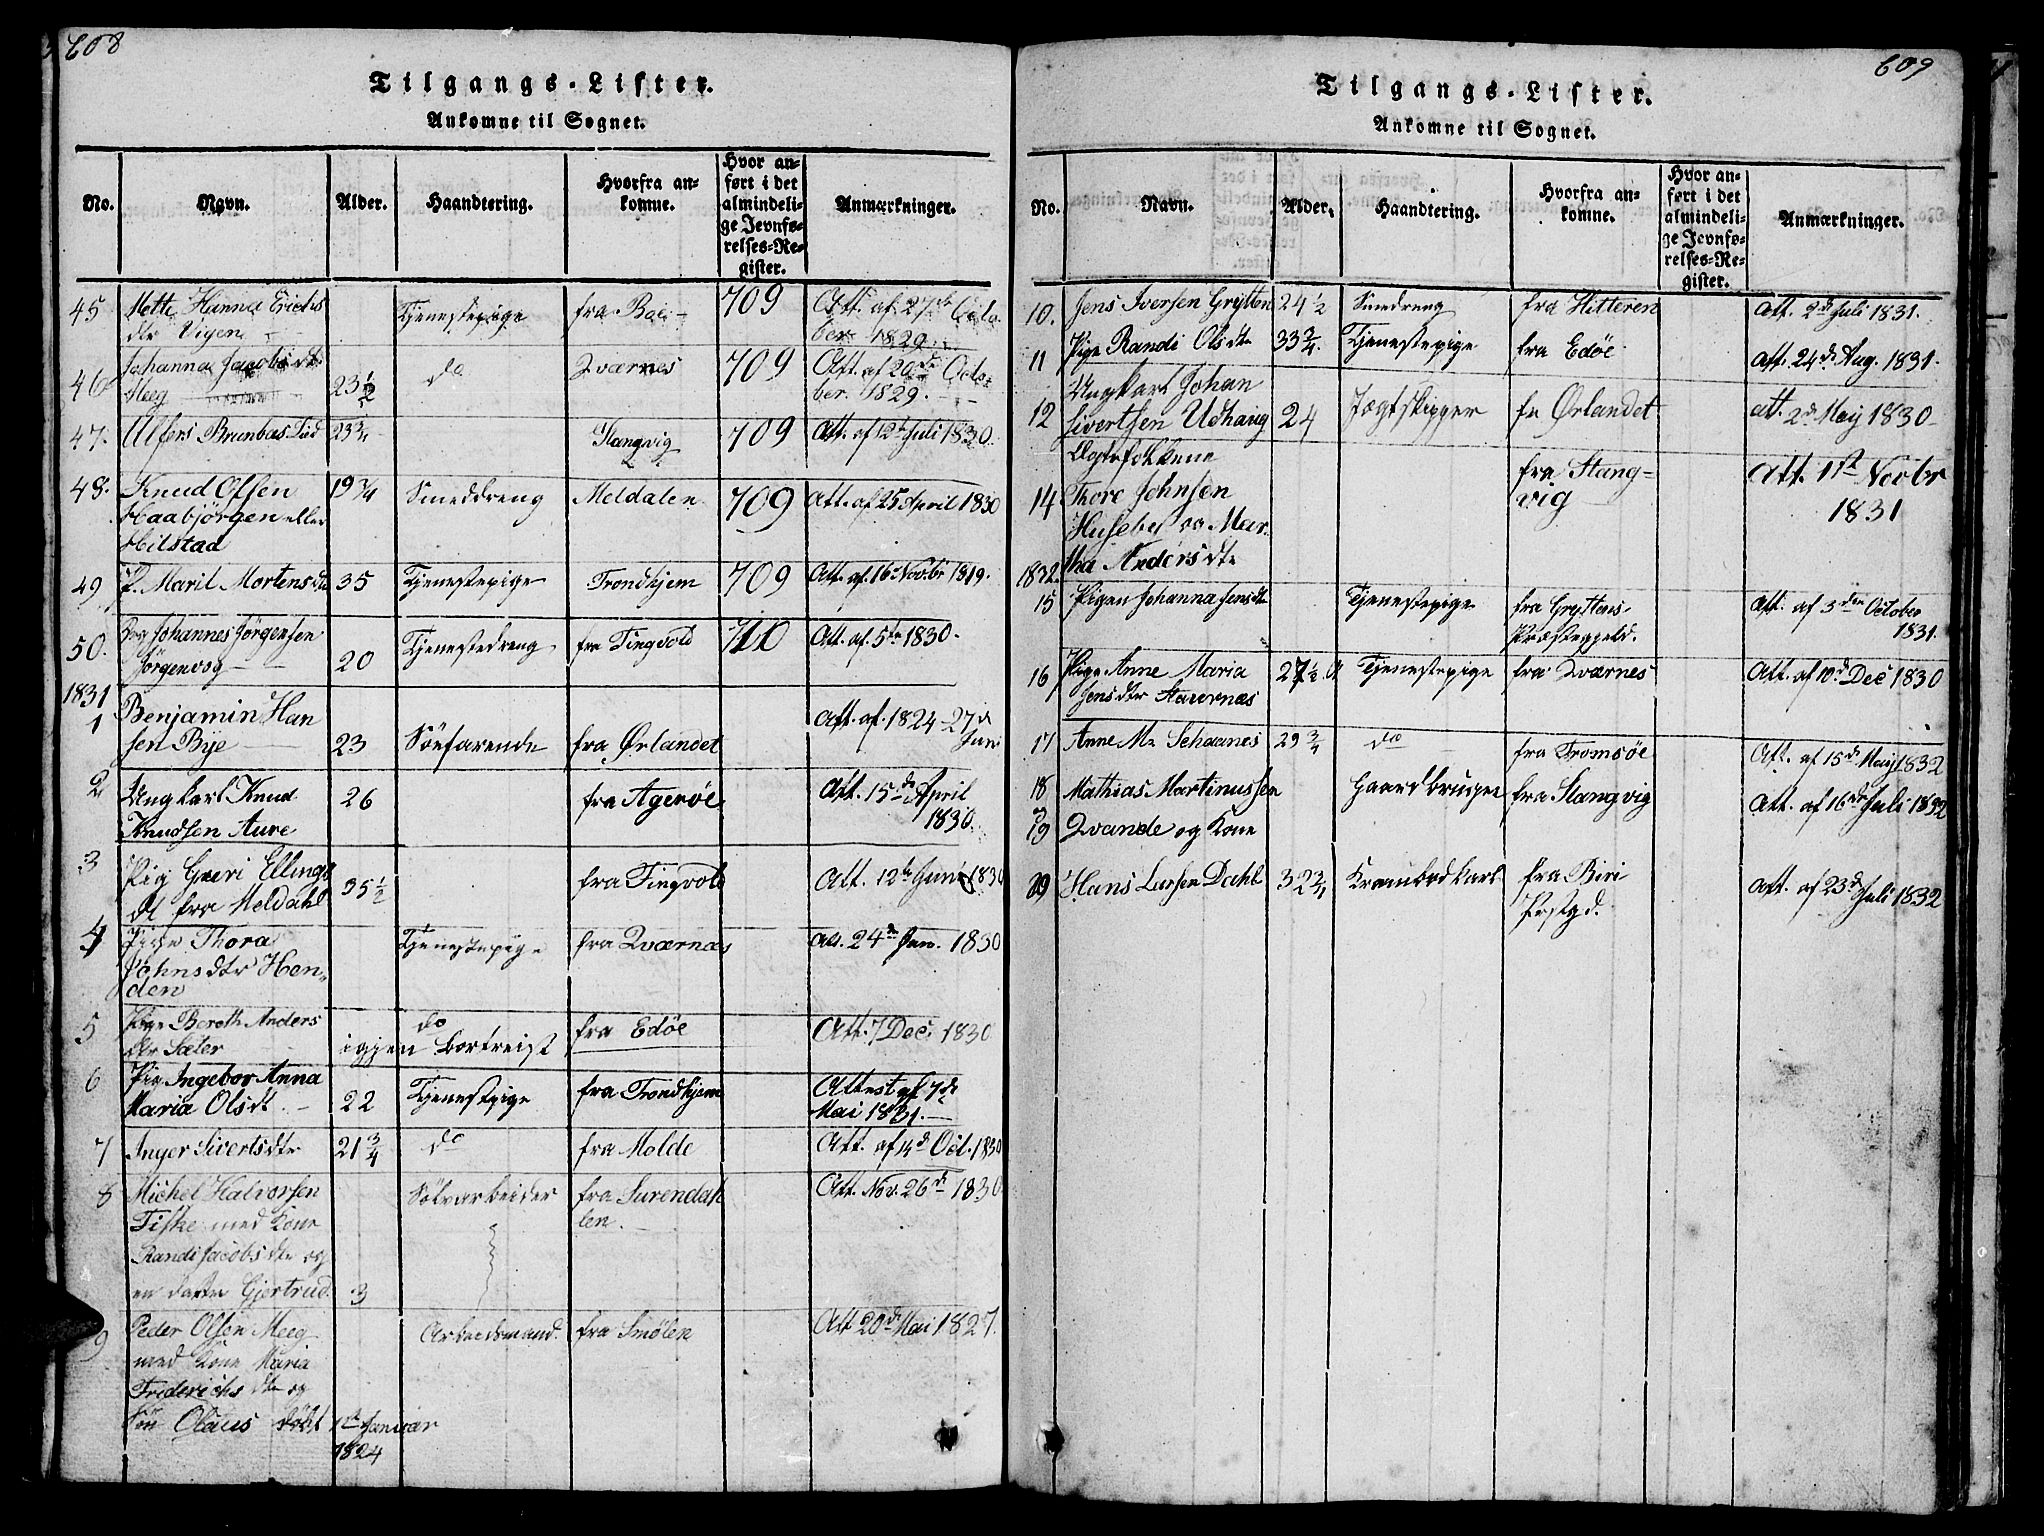 608
Tilgangs-Lister.
Ankomne til Sognet.
No. Navn. Alder. Haandtering. Hvorfra ankomne. Hvor anført i det almindelige Jevnførelses-Register. Anmærkninger.
45 Mette Hanna Erichs Tjenestepige fra 709 Att. af 27de Octo
dtr Vigen ber 1829.
46 Johanna Jacobsdtr 23½ do Qværnes 709 Att. af 20de Octo
Meeg ber. 1829.
47. 23¾ Stangvig 709 Att. af 12te Juli 1830.
48. Knud Olsen 19¾ Smeddreng Meldalen 709 Att. af 25 April 1830
Haabjørgen eller
Hilstad
49 P. Marit Mortensdtr 35 Tjenestepige Trondhjem 709 Att. af 16 Novbr 1819.
50. Johannes Jørgensen 20 Tjenestedreng fra Tingvold 710 Att. af 5te 1830.
Jørgenvog
1831
1 Benjamin Han 23 Søefarende fra Ørlandet Att. af. 1824 27de
sen Bye Juni
2 Ungkarl Knud 26 fra Agerøe Att. 15de April
Knudsen Aure 1830.
3 Pig Ellings 35½ fra Tingvold Att. 12te Juni 1830
dt fra Meldahl
4 Pige Thora Tjenestepige fra Qværnæs Att. 24de Jan. 1830
Johnsdtr Hen
den
5 Pige Bereth Anders do fra Edøe Att. 7 Dec. 1830
dtr Sæter igjen bortreist
6 Pig Ingebor Anna Tjenestpige fra Trondhjem Attest af 7de
Maria Olsdt. 22 Mai 1831.
7 Inger Sivertsdtr 21¾ do fra Molde Att. af 4de Oct. 1830
8 Michel Halvorsen Sølvarbeider fra Surendah Att. Nov. 26de 1830
Fiske med Kone len.
Randi Jacobsdtr og
en datter Gjertrud 3
9 Peder Olsen Meeg Arbeidsmand. fra Smølen Att 20de Mai 1827.
med Kone Maria
Friderichsdtr og
Søn Olaus født 1te Januar
1824
609
Tilgangs-Lister.
Ankomne til Sognet.
No. Navn. Alder. Haandtering. Hvorfra ankomne. Hvor anført i det almindelige Jevnførelses-Register. Anmærkninger.
10. Jens Iversen Grytten 24½ Smedreng fra Hitteren Att. 2de Juli 1831.
11 Pige Randi Olsdtr 33¾ Tjenestepige fra Edøe Att. 24de Aug. 1831.
12 Ungkarl Johan
Sivertsen Udhaug 24 Jægtskipper fra Ørlandet att. 2de Maj 1830
Ægtefolkene fra Stang- Att. 11te Novbr
14 Thore Johnsen vig 1831
Husebye og Mar
tha Andersdtr
1832.
15 Pigen Johanna Jensdtr Tjenestepige fra Gryttens Att. af 3den October
Præstegjeld. 1831.
16 Pige Anne Maria 27½ Tjenestepige fra Qværnes Att. af 10de Dec 1830
Jensdtr Stavernæs
17 Anne M. 29¾ do fra Tromsøe Att. af 15de Maij 1832
18 Mathias Martinussen Gaardbruger fra Stangvig Att. af 16de Juli 1832
19 Qvande og Kone
20 Hans Larsen Dahl 32¾ Krambodkarl fra Biri Att. af 23de Juli 1832
Prstgd.